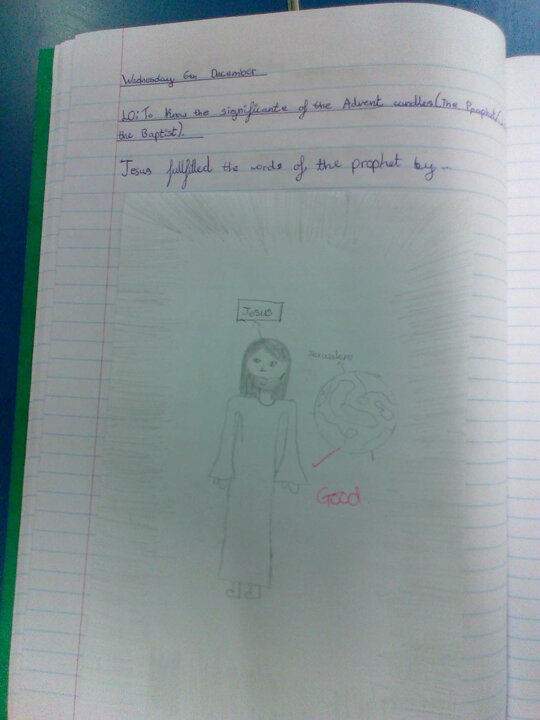 Wednesday 6th December
LO: To know the significante of the Advent candles (The Prophet/
the Baptist).
Jesus fullfilled the words of the prophet by...
Jesus
Jerusalem
Good